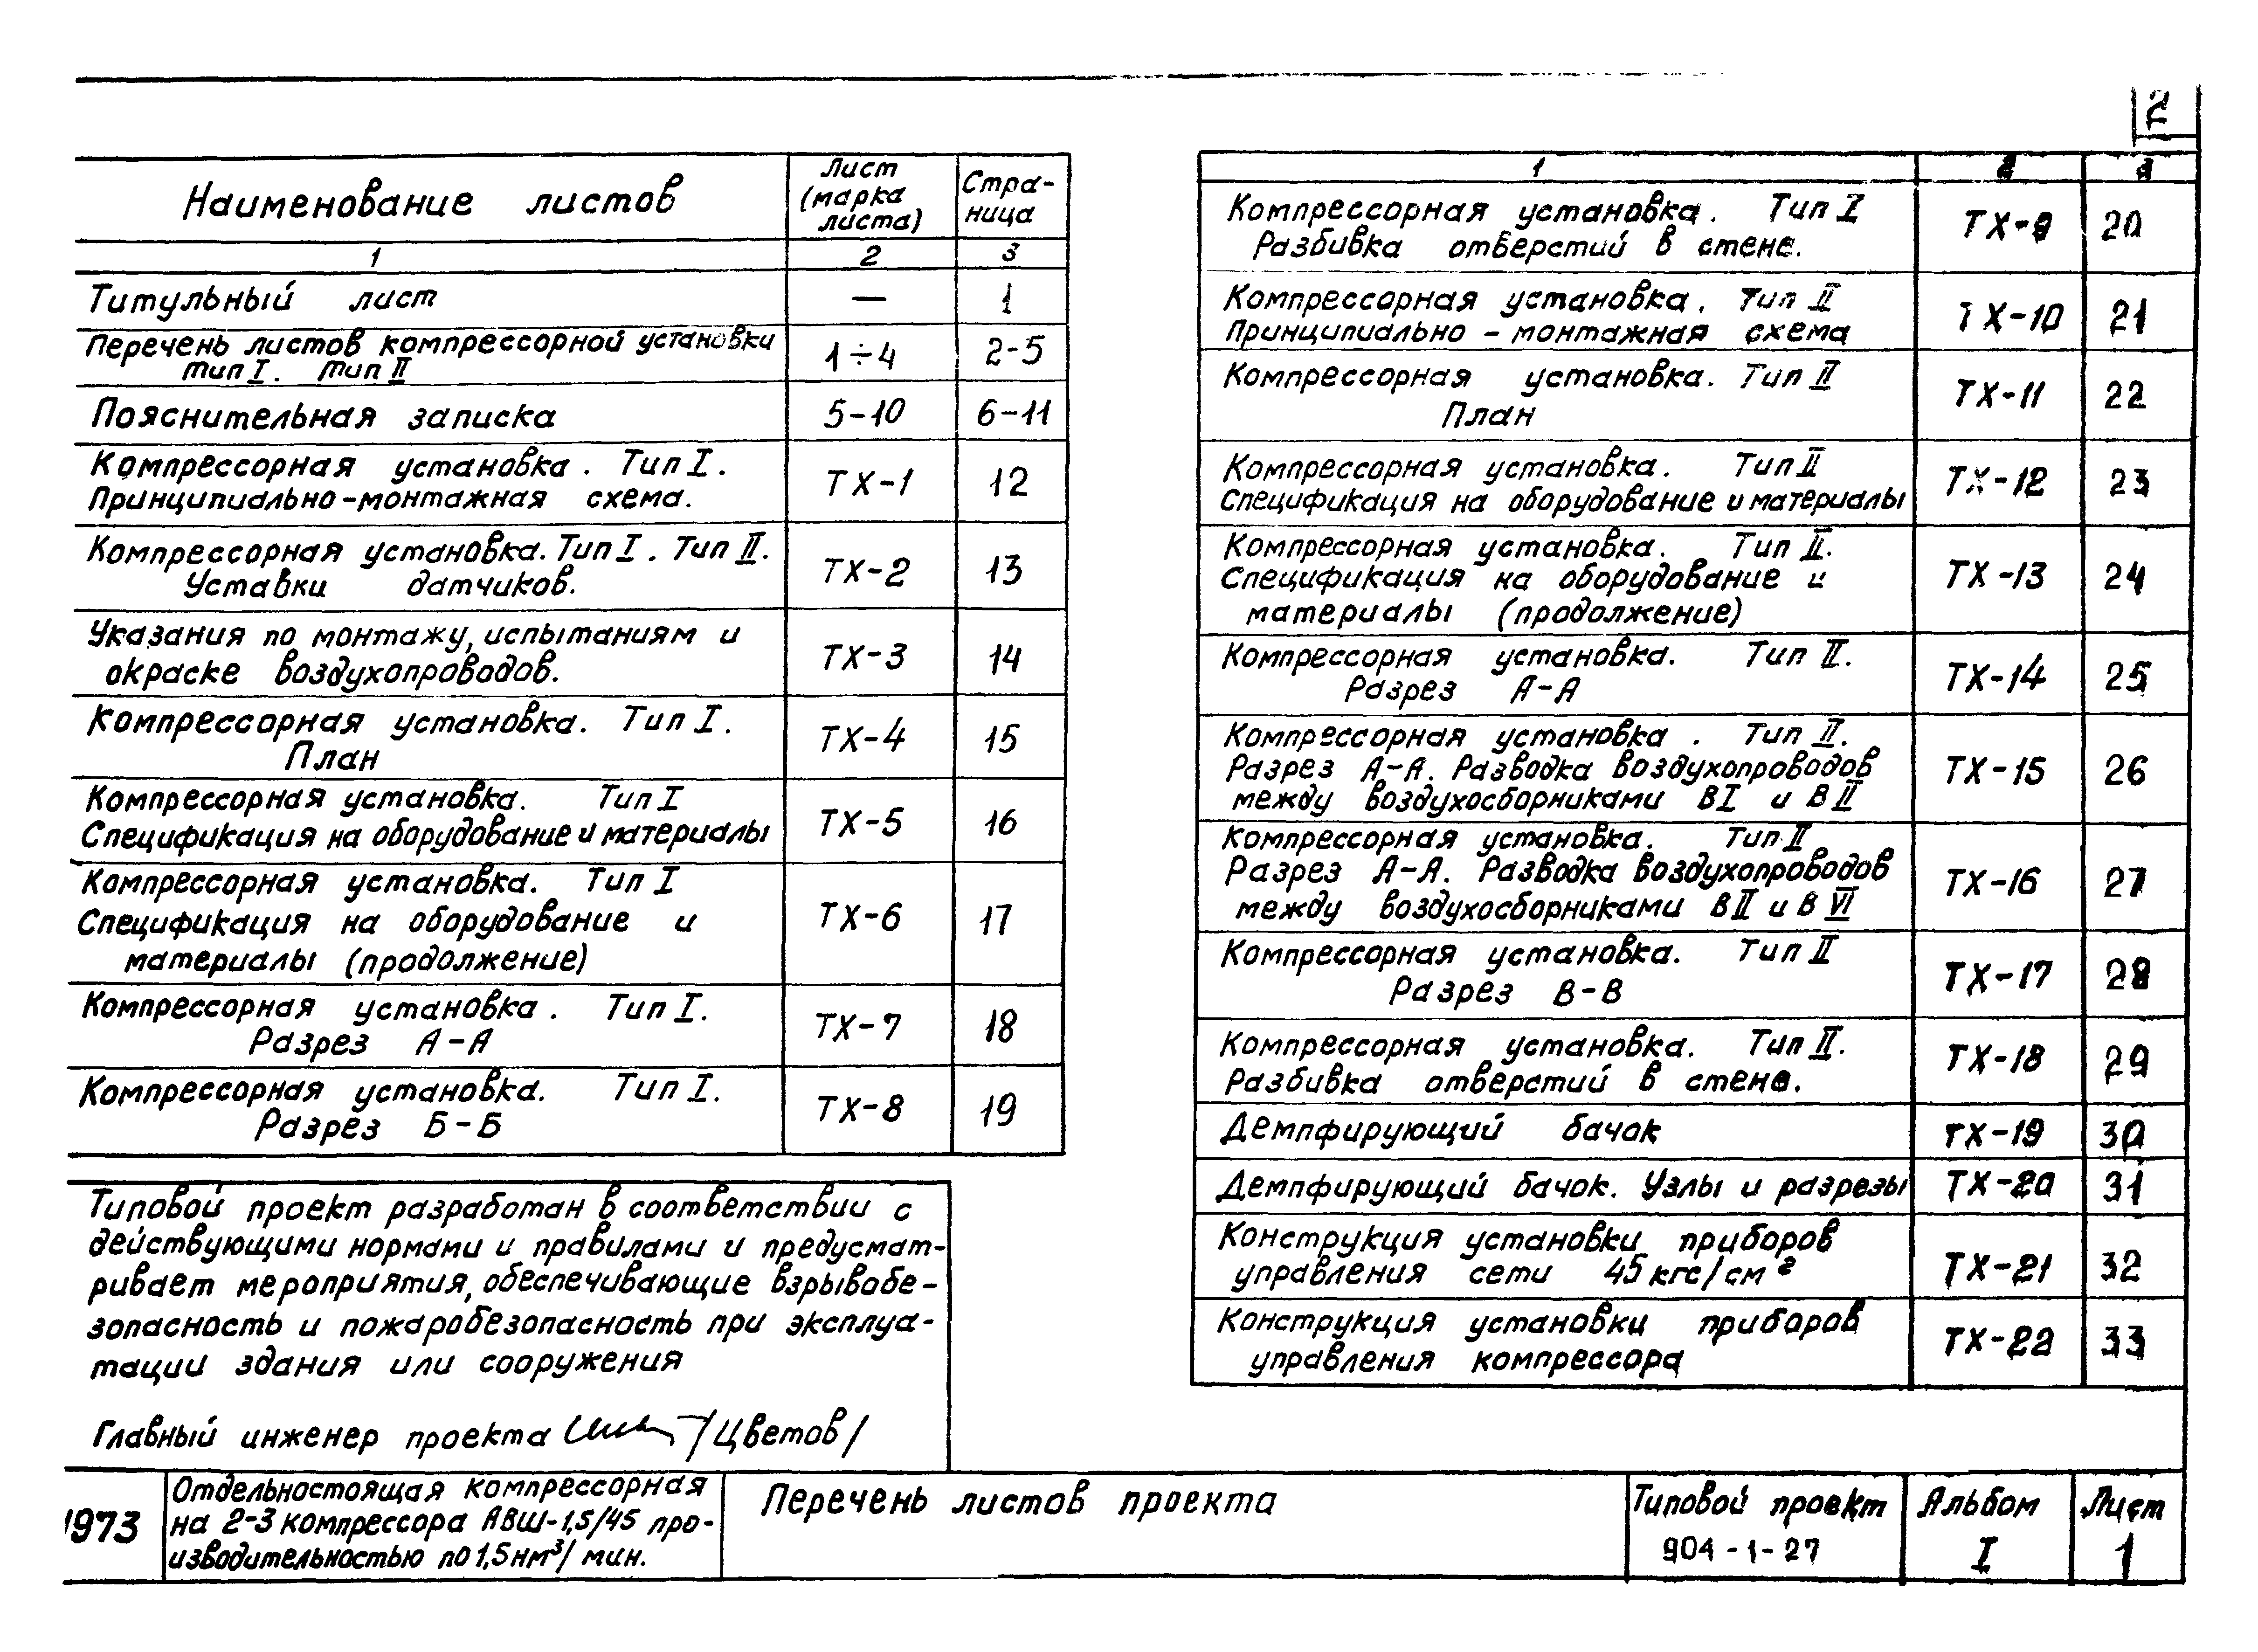 2
Наименование листов
Лист
(марка
листа)
Стра-
ница
1 2 3
Титульный лист — 1
Перечень листов компрессорной установки
тип I. тип II
1÷4 2-5
Пояснительная записка 5-10 6-11
Компрессорная установка. Тип I.
Принципиально-монтажная схема.
ТХ-1 12
Компрессорная установка. Тип I. Тип II.
Уставки датчиков.
ТХ-2 13
Указания по монтажу, испытаниям и
окраске воздухопроводов.
ТХ-3 14
Компрессорная установка. Тип I.
План
ТХ-4 15
Компрессорная установка. Тип I
Спецификация на оборудование и материалы
ТХ-5 16
Компрессорная установка. Тип I
Спецификация на оборудование и
материалы (продолжение)
ТХ-6 17
Компрессорная установка. Тип I.
Разрез А-А
ТХ-7 18
Компрессорная установка. Тип I.
Разрез Б-Б
ТХ-8 19
1 2 3
Компрессорная установка. Тип I
Разбивка отверстий в стене.
ТХ-9 20
Компрессорная установка. Тип II
Принципиально-монтажная схема
ТХ-10 21
Компрессорная установка. Тип II
План
ТХ-11 22
Компрессорная установка. Тип II
Спецификация на оборудование и материалы
ТХ-12 23
Компрессорная установка. Тип II.
Спецификация на оборудование и
материалы (продолжение)
ТХ-13 24
Компрессорная установка. Тип II.
Разрез А-А
ТХ-14 25
Компрессорная установка. Тип II.
Разрез А-А. Разводка воздухопроводов
между воздухосборниками ВI и ВII
ТХ-15 26
Компрессорная установка. Тип II
Разрез А-А. Разводка воздухопроводов
между воздухосборниками ВII и В VI
ТХ-16 27
Компрессорная установка. Тип II
Разрез В-В
ТХ-17 28
Компрессорная установка. Тип II.
Разбивка отверстий в стене.
ТХ-18 29
Демпфирующий бачок ТХ-19 30
Демпфирующий бачок. Узлы и разрезы ТХ-20 31
Конструкция установки приборов
управления сети 45 кгс/см²
ТХ-21 32
Конструкция установки приборов
управления компрессора
ТХ-22 33
Типовой проект разработан в соответствии с
действующими нормами и правилами и предусмат-
ривает мероприятия, обеспечивающие взрывобе-
зопасность и пожаробезопасность при эксплуа-
тации здания или сооружения
Главный инженер проекта /Цветов/
1973
Отдельностоящая компрессорная
на 2-3 компрессора АВШ-1,5/45 про-
изводительностью по 1,5 нм³/мин.
Перечень листов проекта
Типовой проект
904-1-27
Альбом
I
Лист
1